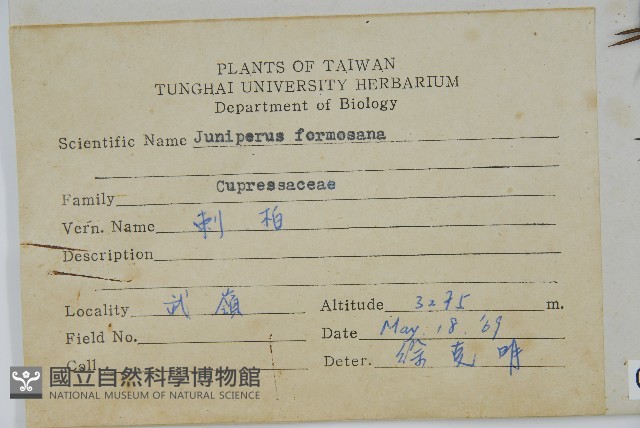 PLANTS OF TAIWAN
TUNGHAI UNIVERSITY HERBARIUM
Department of Biology
Scientific Name Juniperus formosana
Family Cupressaceae
Vern. Name 刺柏
Description
Locality 武嶺 Altitude 3275 m.
Field No. Date May. 18. '69
Coll. Deter. 徐克明
國立自然科學博物館
NATIONAL MUSEUM OF NATURAL SCIENCE